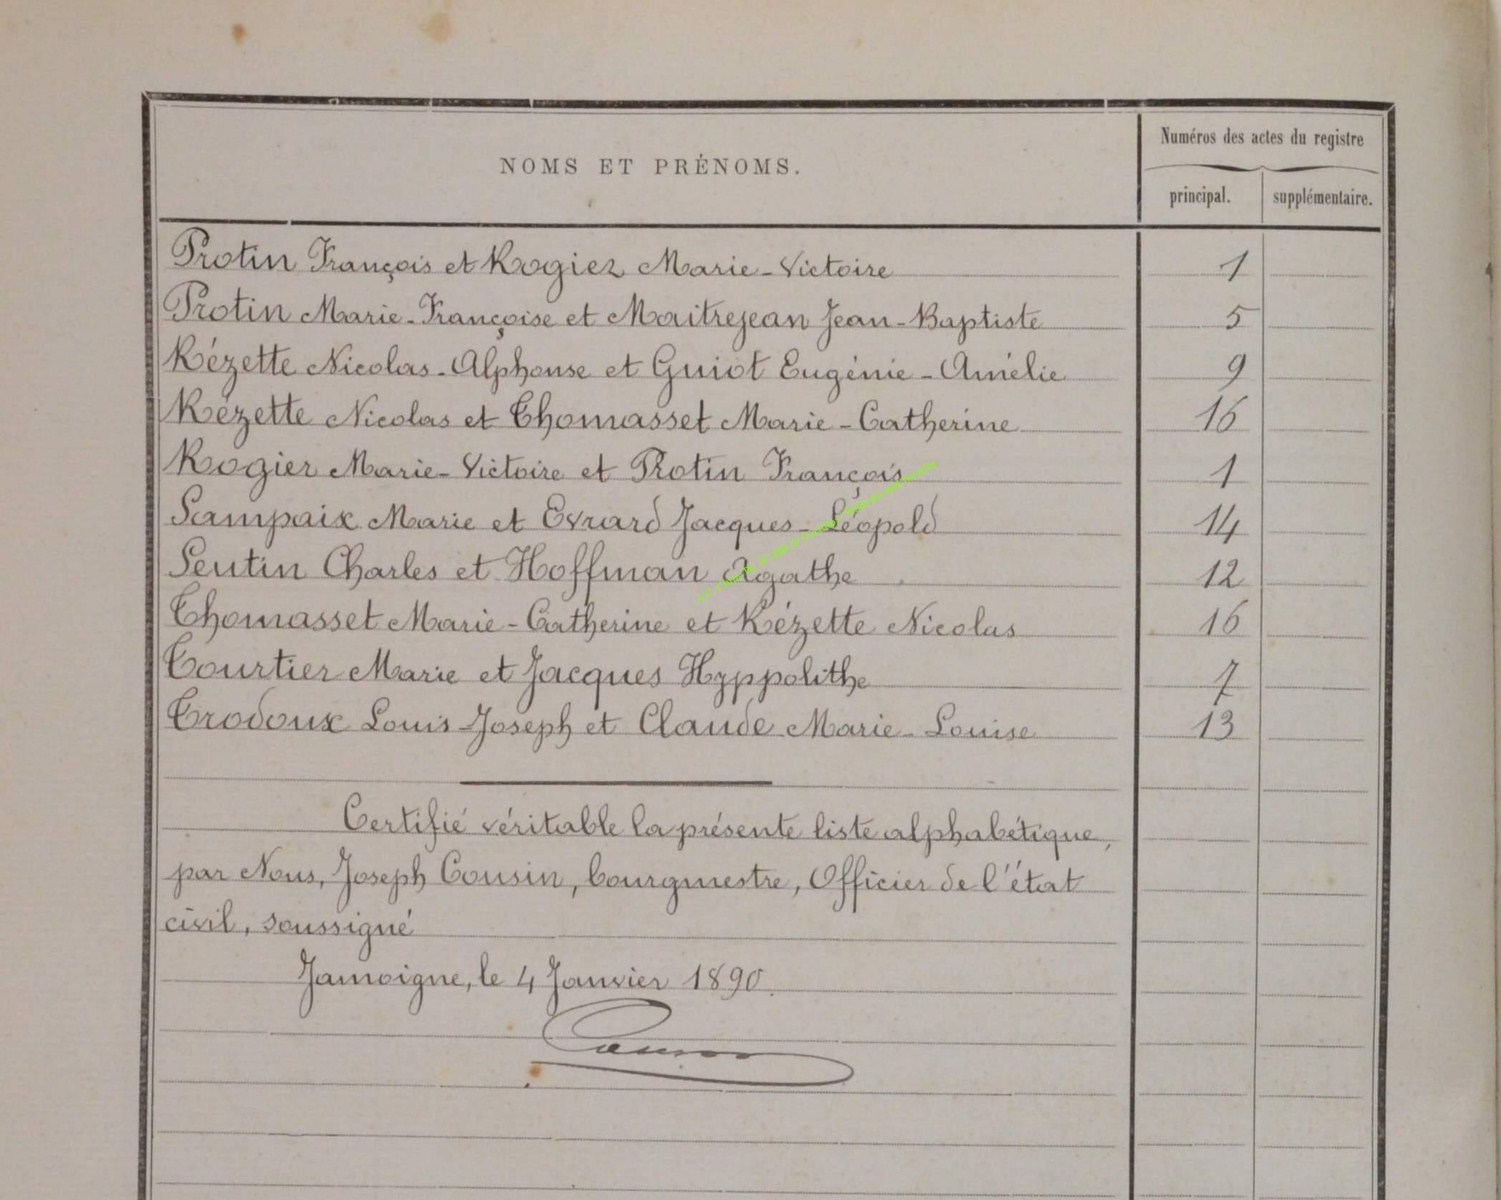 NOMS ET PRÉNOMS.
Numéros des actes du registre
principal. supplémentaire.
Protin François et Rogier Marie-Victoire 1
Protin Marie-Françoise et Maitrejean Jean-Baptiste 5
Rézette Nicolas-Alphonse et Guiot Eugénie-Amélie 9
Rézette Nicolas et Thomasset Marie-Catherine 16
Rogier Marie-Victoire et Protin François 1
Sampaix Marie et Evrard Jacques-Léopold 14
Sentin Charles et Hoffman Agathe 12
Thomasset Marie-Catherine et Rézette Nicolas 16
Tourtier Marie et Jacques Hyppolithe 7
Trodoux Louis-Joseph et Claude Marie-Louise 13
Certifié véritable la présente liste alphabétique,
par Nous, Joseph Cousin, bourgmestre, Officier de l'état
civil, soussigné
Jamoigne, le 4 Janvier 1890.
Cousin